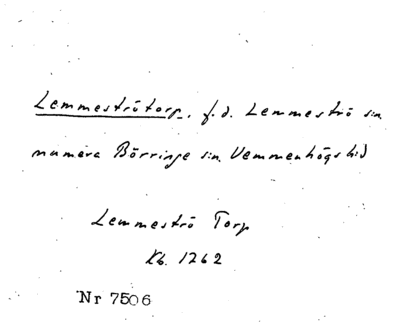 Lemmeströtorp, f.d. Lemmeströ sn
numera Börringe sn Vemmenhögs hd
Lemmeströ Torp
Kb. 1262
Nr 7506